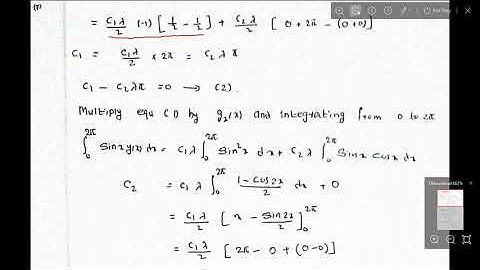 = C₁λ/2 (-1) [1/2 - 1/2] + C₂λ/2 [0 + 2π - (0+0)]
C₁ = C₂λ/2 × 2π = C₂λπ
C₁ - C₂λπ = 0 → (2).
Multiply equ (1) by g₂(x) and integrating from 0 to 2π
∫₀^2π Sinx y(x) dx = C₁λ ∫₀^2π Sin²x dx + C₂λ ∫₀^2π Sinx Cosx dx
C₂ = C₁λ ∫₀^2π (1-Cos2x)/2 dx + 0
= C₁λ/2 [x - Sin2x/2]₀^2π
= C₁λ/2 [2π - 0 + (0-0)]